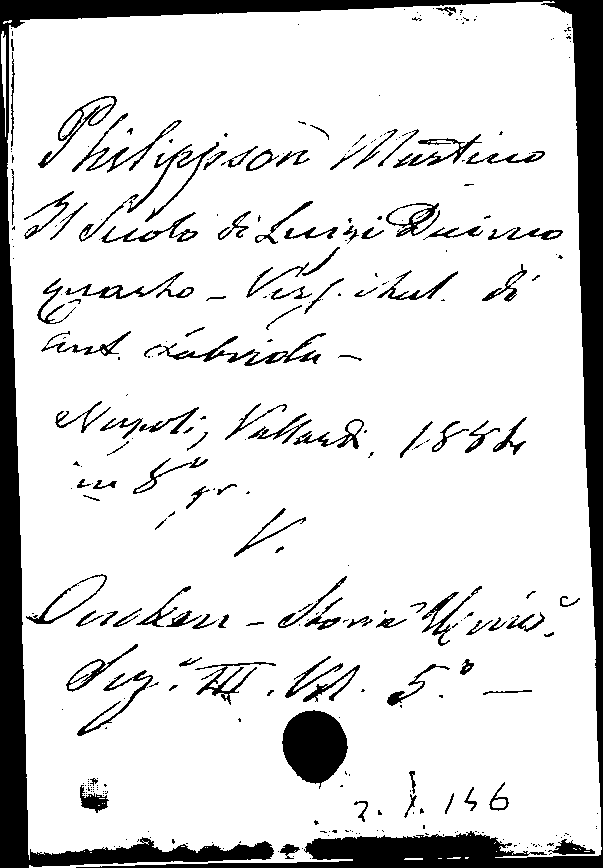 Philippson Martino
Il Secolo di Luigi Decimo
quarto - Vers. ital. di
Ant. Labriola -
Napoli, Vallardi, 1884
in 8° gr.
V.
Oncken - Storia Univ.
Sez.e III. Vol. 5.° -
2. X. 146